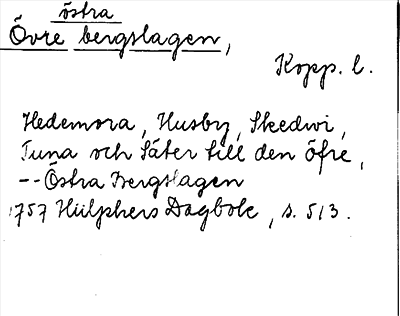 östra
Övre bergslagen,
Kopp. l.
Hedemora, Husby, Skedwi,
Tuna och Säter till den öfre,
-- Östra Bergslagen
1757 Hülphers Dagbok, s. 513.